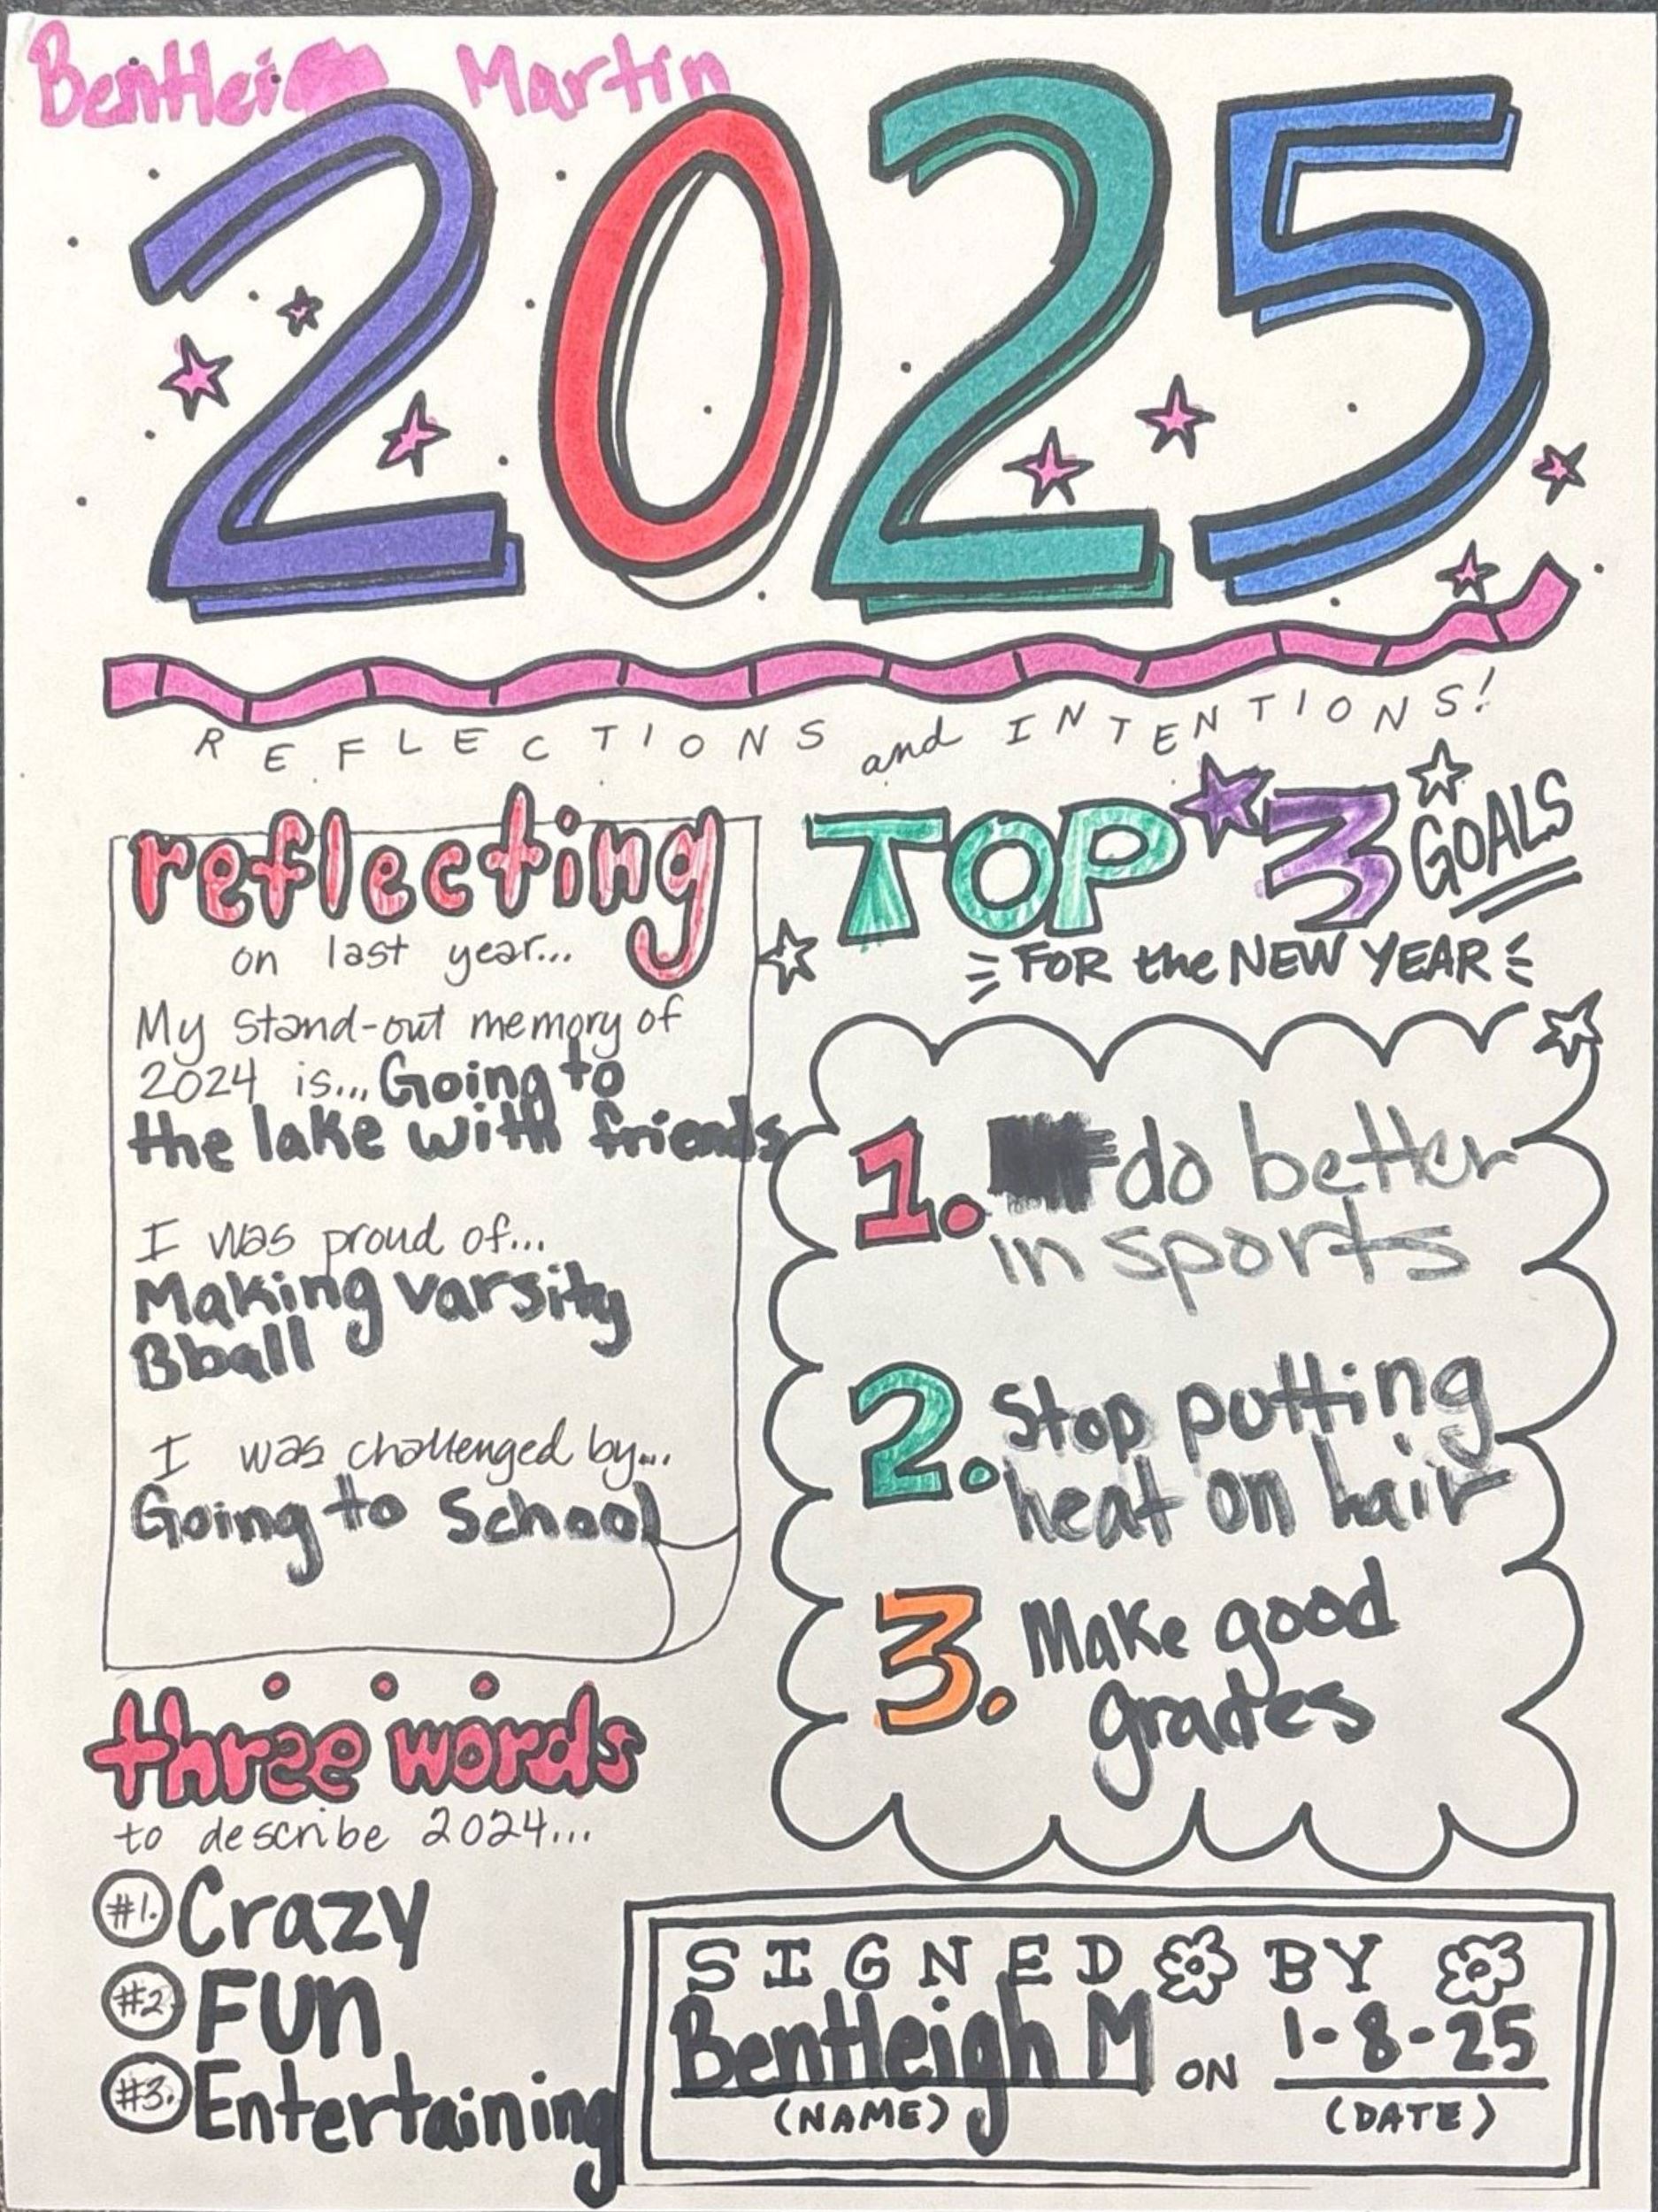 Bentlei Martin
2025
REFLECTIONS and INTENTIONS!
reflecting
on last year...
My stand-out memory of
2024 is... Going to
the lake with friends
I was proud of...
Making varsity
Bball
I was challenged by...
Going to School
three words
to describe 2024...
#1. Crazy
#2. FUN
#3. Entertaining
TOP 3 GOALS
FOR the NEW YEAR
1. do better
in sports
2. Stop putting
heat on hair
3. Make good
grades
SIGNED BY
Bentleigh M ON 1-8-25
(NAME) (DATE)